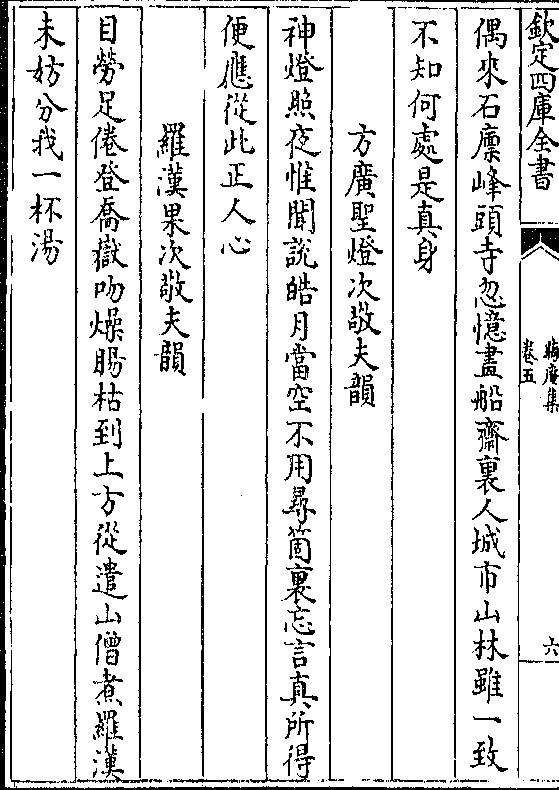 欽定四庫全書
晦庵集
卷五
六
偶來石廩峰頭寺忽憶畫船齋裏人城市山林雖一致
不知何處是真身
方廣聖燈次敬夫韻
神燈照夜惟聞説皓月當空不用尋箇裏忘言真所得
便應從此正人心
羅漢果次敬夫韻
目勞足倦登喬嶽吻燥腸枯到上方從遣山僧煮羅漢
未妨分我一杯湯